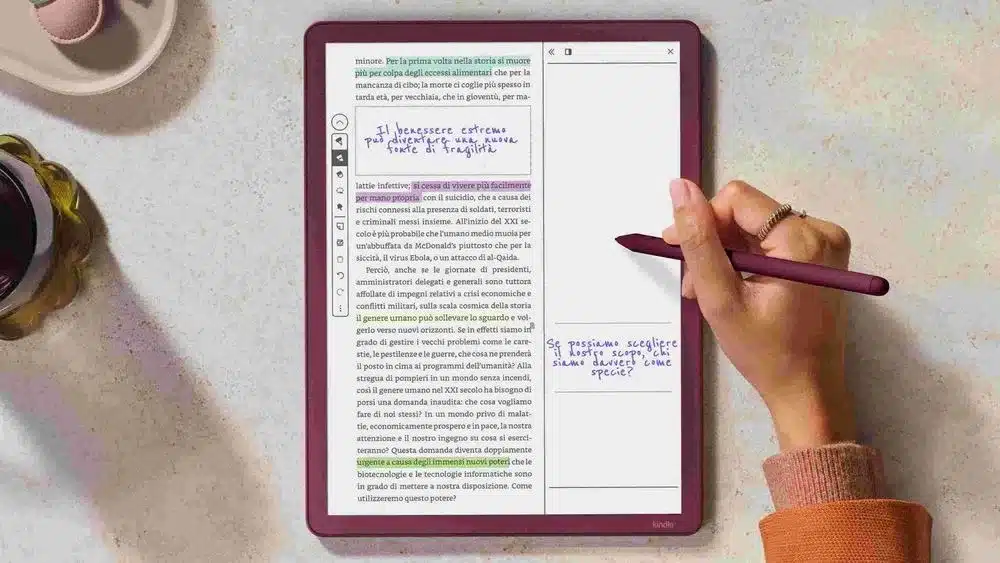 minore. Per la prima volta nella storia si muore
più per colpa degli eccessi alimentari che per la
mancanza di cibo; la morte ci coglie più spesso in
tarda età, per vecchiaia, che in gioventù, per ma-
Il benessere estremo
può diventare una nuova
fonte di fragilità
lattie infettive; si cessa di vivere più facilmente
per mano propria con il suicidio, che a causa dei
rischi connessi alla presenza di soldati, terroristi
e criminali messi insieme. All'inizio del XXI se-
colo è più probabile che l'umano medio muoia per
un'abbuffata da McDonald's piuttosto che per la
siccità, il virus Ebola, o un attacco di al-Qaida.
Perciò, anche se le giornate di presidenti,
amministratori delegati e generali sono tuttora
affollate di impegni relativi a crisi economiche e
conflitti militari, sulla scala cosmica della storia
il genere umano può sollevare lo sguardo e vol-
gerlo verso nuovi orizzonti. Se in effetti siamo in
grado di gestire i vecchi problemi come le care-
stie, le pestilenze e le guerre, che cosa ne prenderà
il posto in cima ai programmi dell'umanità? Alla
stregua di pompieri in un mondo senza incendi,
così il genere umano nel XXI secolo ha bisogno di
porsi una domanda inaudita: che cosa vogliamo
fare di noi stessi? In un mondo privo di malat-
tie, economicamente prospero e in pace, la nostra
attenzione e il nostro ingegno su cosa si eserci-
teranno? Questa domanda diventa doppiamente
urgente a causa degli immensi nuovi poteri che le
biotecnologie e le tecnologie informatiche sono
in grado di mettere a nostra disposizione. Come
utilizzeremo questo potere?
Se possiamo scegliere
il nostro scopo, chi
siamo davvero come
specie?
kindle